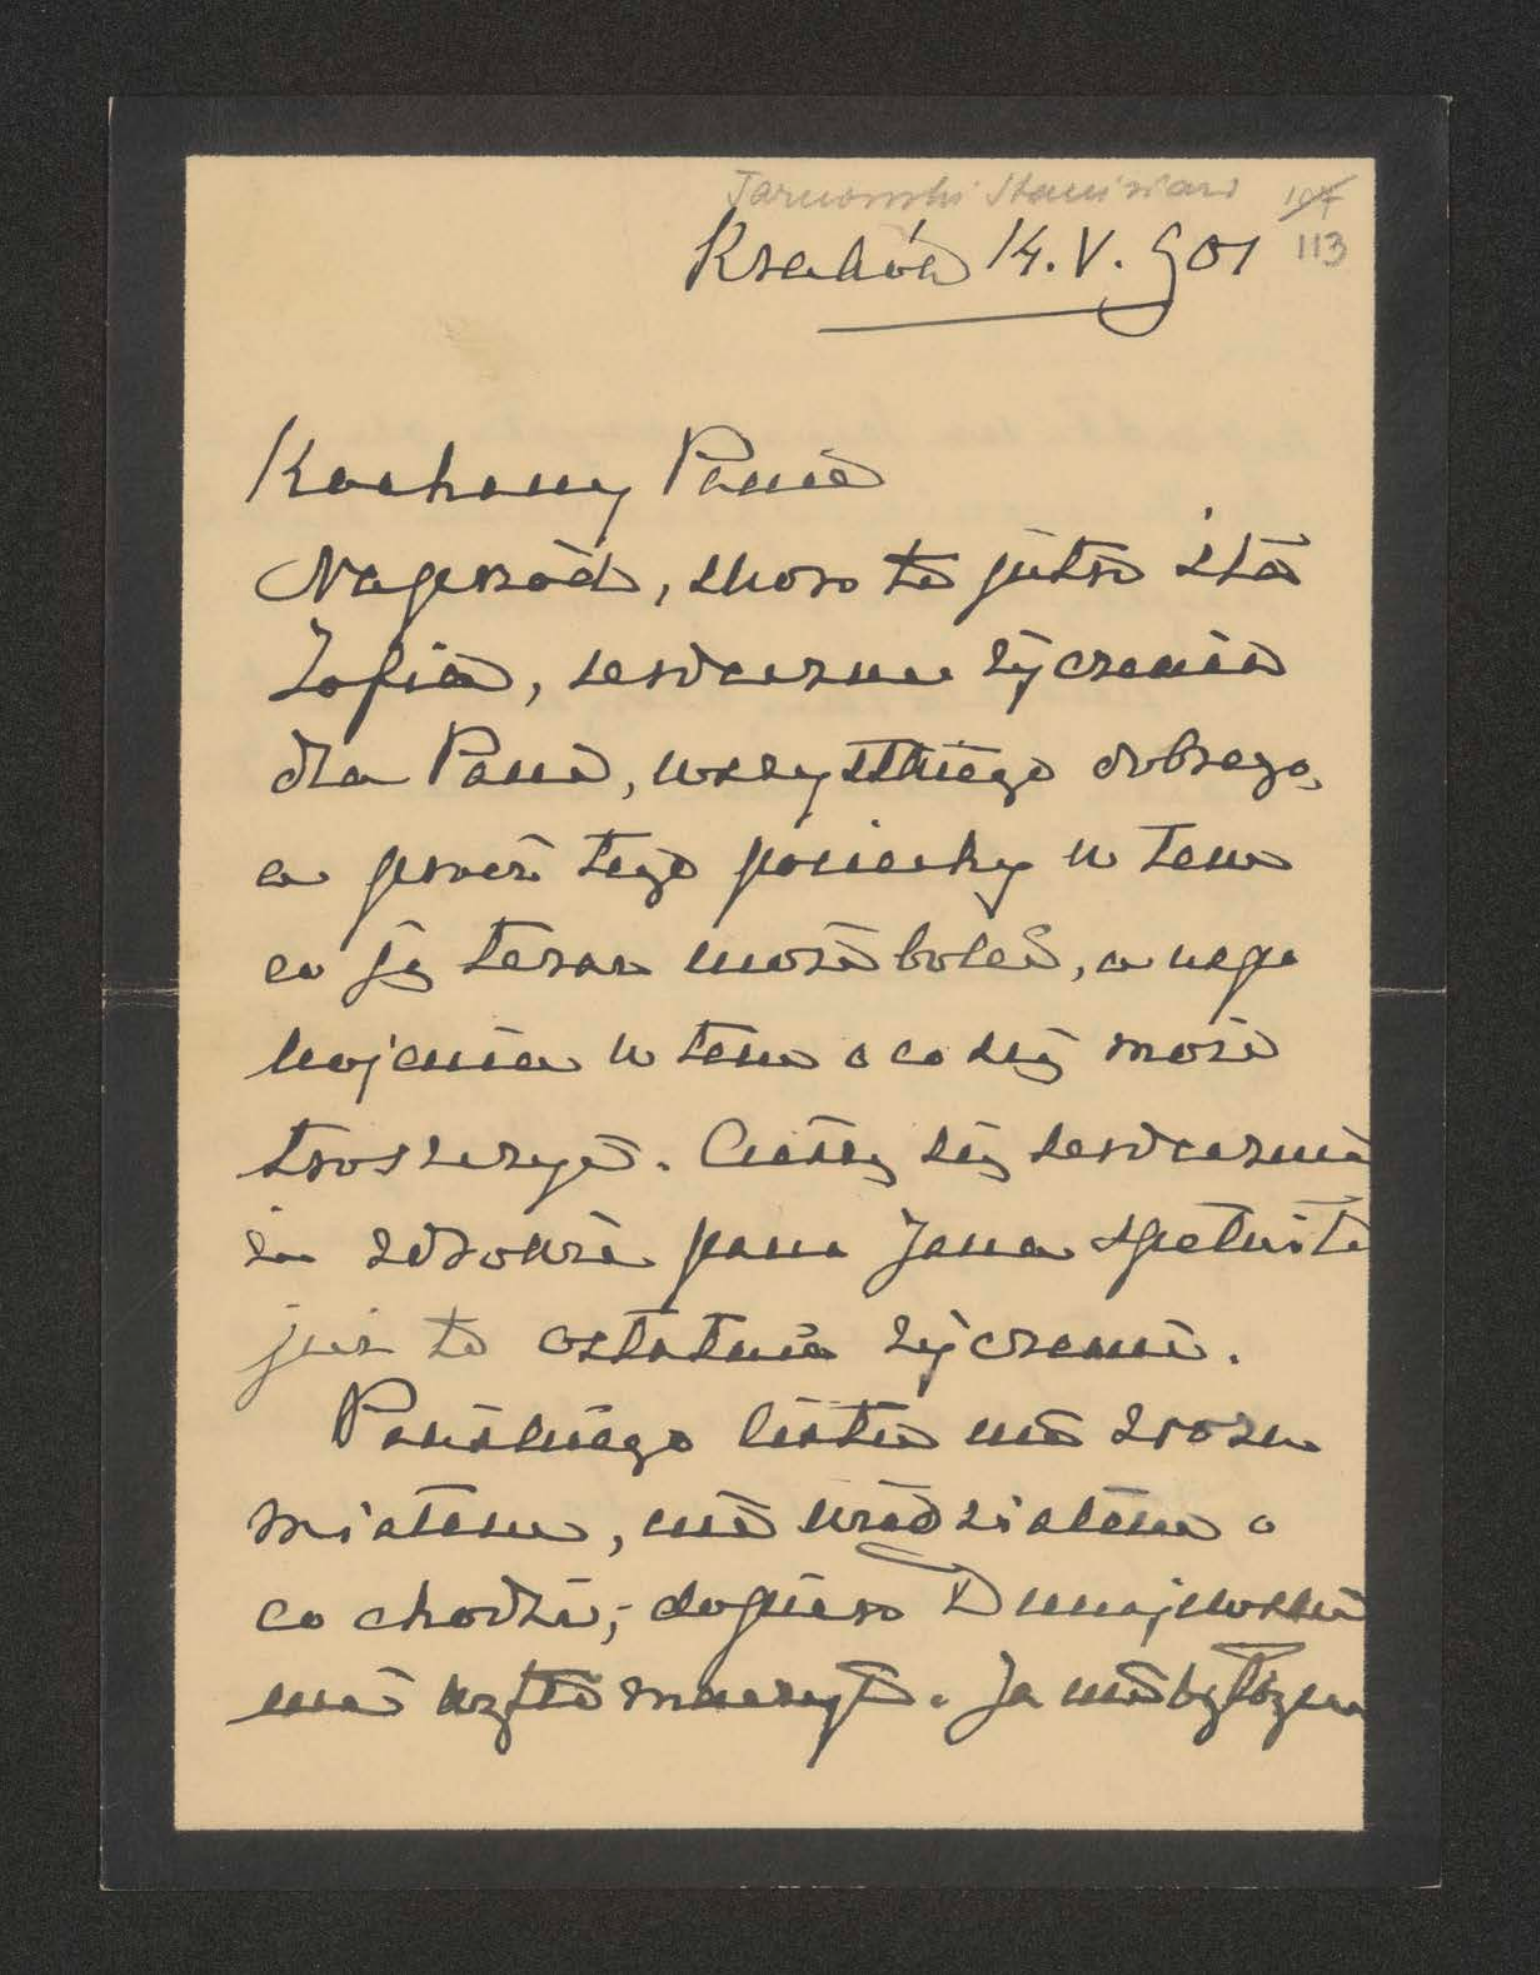 Tarnowski Stanisław 107
113
Kraków 14.V.901
Kochany Panie
Naprzód, skoro to jutro Śtа
Zofia, serdeczne życzenia
dla Pani, wszystkiego dobrego,
a prócz tego pociechy w tem
co ją teraz może boleć, a uspo
kojenia w tem o co się może
troszczyć. Cieszę się serdecznie
że zdrowie pana Jana spełniło
już to ostatnie życzenie.
Pańskiego listu nie zrozu
miałem, nie wiedziałem o
co chodzi; dopiero Dunajewski
mnie wytłómaczył. Ja nie byłbym